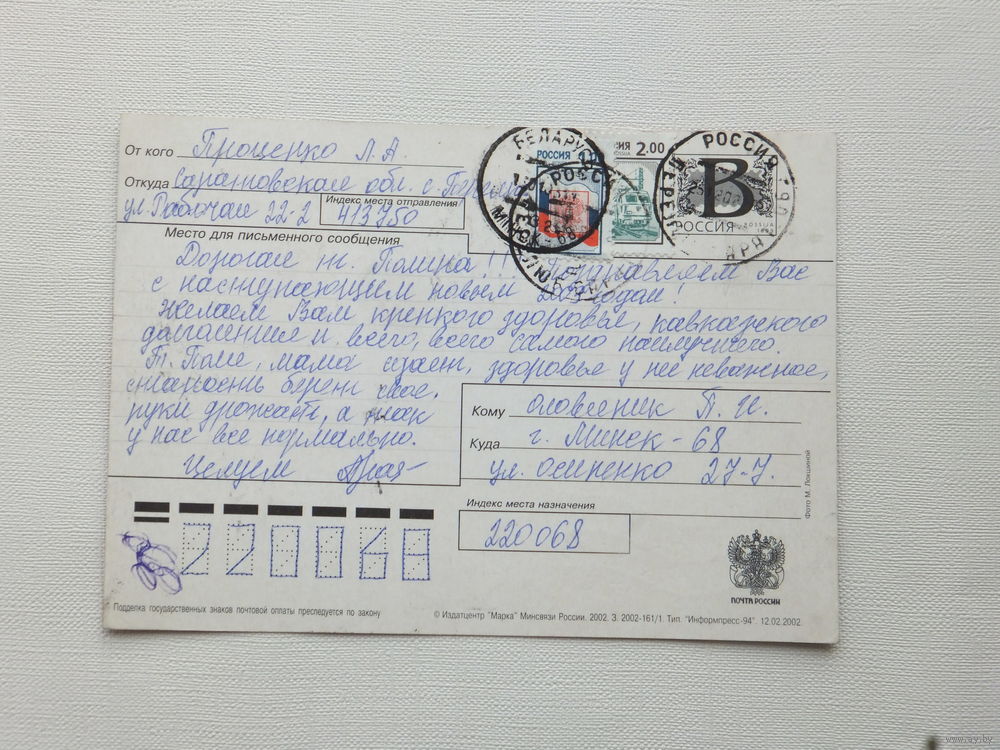 От кого Проценко Л.А.
Откуда Саратовская обл. с.
ул. Рабочая 22-2 Индекс места отправления 413750
Место для письменного сообщения
БЕЛАРУСЬ
РОССИЯ
2.00
РОССИЯ
B
РОССИЯ
МІНСК - 68
Дорогая т. Полина!! Поздравляем Вас
с наступающим новым 2003 годом!
Желаем Вам крепкого здоровья, кавказского
долголетия и всего, всего самого наилучшего.
Т. Поле, мама здоровье у нее неважное,
старость берет свое,
руки дрожат, а так
у нас все нормально.
Целуем
Кому Словесник П. И.
Куда г. Минск - 68
ул. Осипенко 27-7.
Индекс места назначения
220068
220068
Фото М. Локшиной
ПОЧТА РОССИИ
Подделка государственных знаков почтовой оплаты преследуется по закону
© Издатцентр "Марка" Минсвязи России. 2002. З. 2002-161/1. Тип. "Информпресс-94". 12.02.2002
www.ay.by